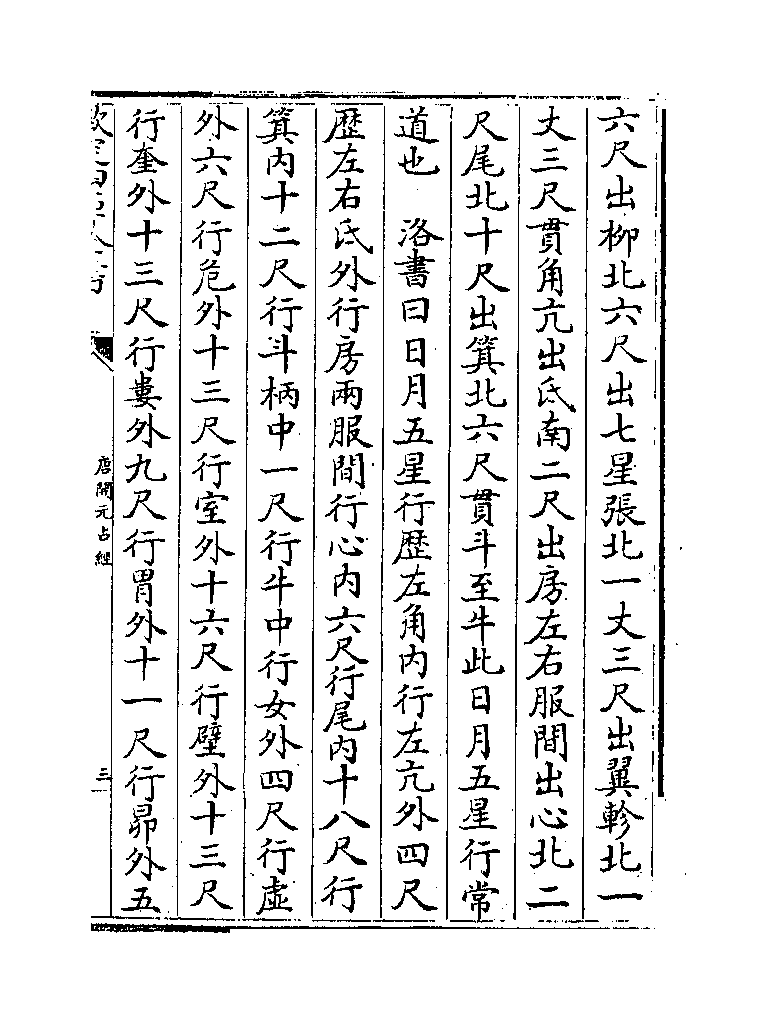 六尺出柳北六尺出七星張北一丈三尺出翼軫北一
丈三尺貫角亢出氐南二尺出房左右服間出心北二
尺尾北十尺出箕北六尺貫斗至牛此日月五星行常
道也　洛書曰日月五星行歴左角内行左亢外四尺
歴左右氐外行房兩服間行心内六尺行尾内十八尺行
箕内十二尺行斗柄中一尺行牛中行女外四尺行虛
外六尺行危外十三尺行室外十六尺行壁外十三尺
行奎外十三尺行婁外九尺行胃外十一尺行昴外五
唐開元占經
三